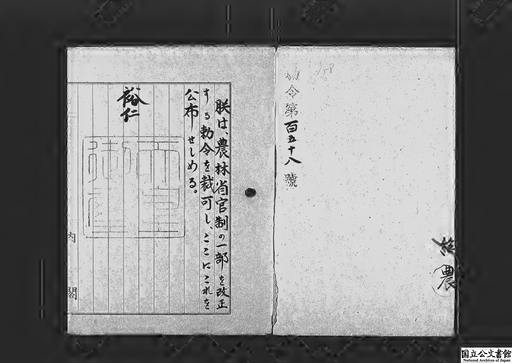 令第百五十八號
朕は、農林省官制の一部を改正
する勅令を裁可し、ここにこれを
公布せしめる。
裕仁
御璽
内閣
農
国立公文書館
National Archives of Japan